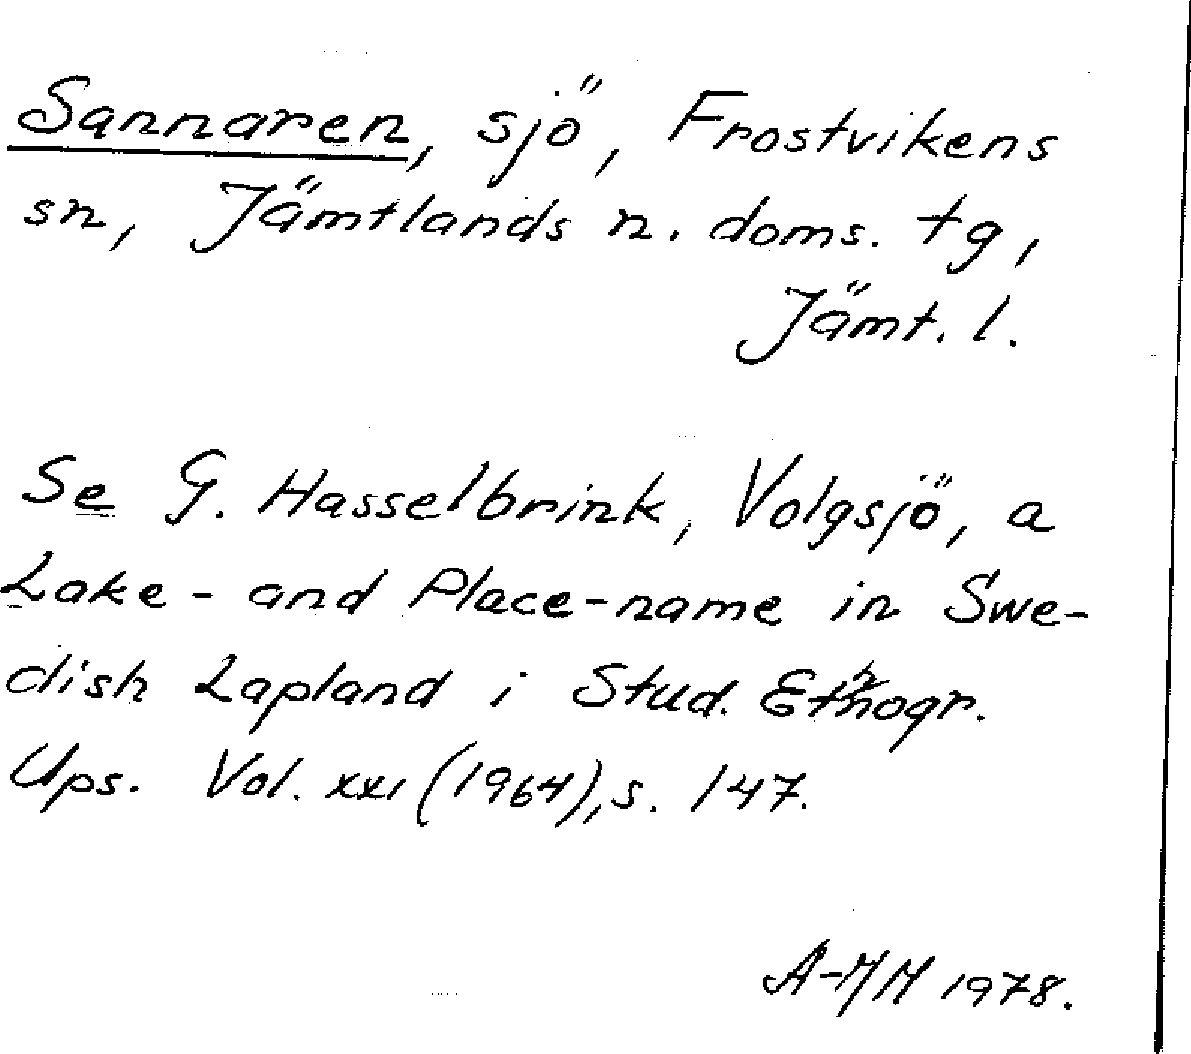 Sannaren, sjö, Frostvikens
sn, Jämtlands n. doms. tg,
Jämt. l.
Se G. Hasselbrink, Volgsjö, a
Lake- and Place-name in Swe-
dish Lapland i Stud. Ethnogr.
Ups. Vol. XXI (1964), s. 147.
A-MM 1978.